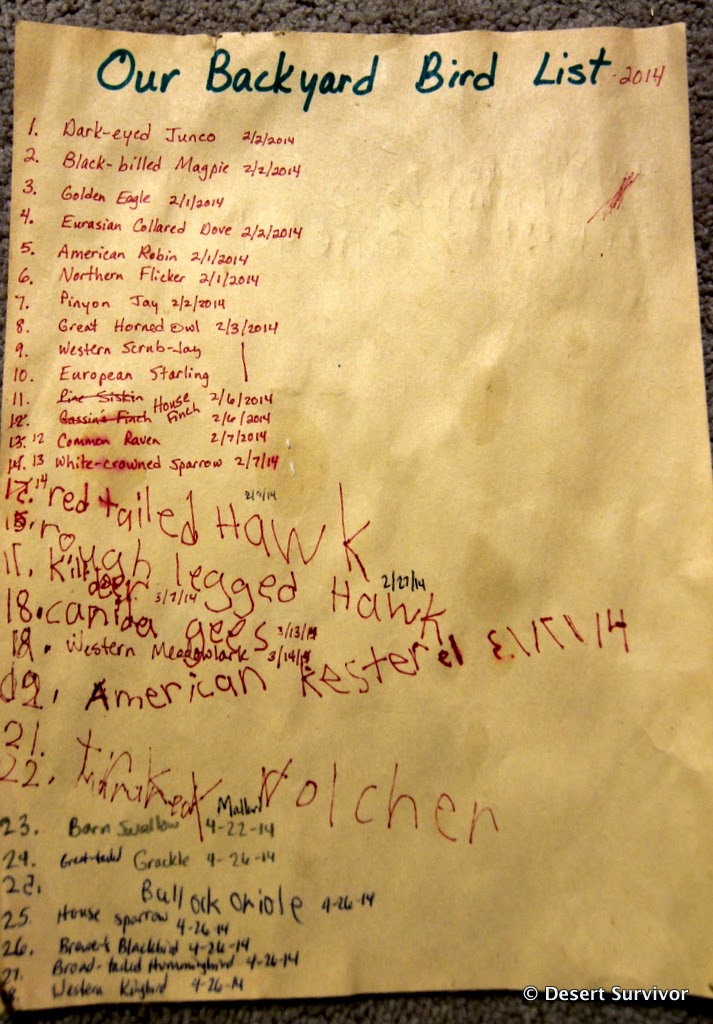 Our Backyard Bird List 2014
1. Dark-eyed Junco 2/2/2014
2. Black-billed Magpie 2/2/2014
3. Golden Eagle 2/1/2014
4. Eurasian Collared Dove 2/2/2014
5. American Robin 2/1/2014
6. Northern Flicker 2/1/2014
7. Pinyon Jay 2/2/2014
8. Great Horned Owl 2/3/2014
9. Western Scrub-Jay
10. European Starling
11. Pine Siskin House Finch 2/6/2014
12. Cassin's Finch 2/6/2014
13. 12 Common Raven 2/7/2014
14. 13 White-crowned Sparrow 2/7/14
14 red tailed Hawk
rough legged Hawk 2/27/14
17. killdeer 3/7/14
18. canida gees 3/13/14
19. Western Meadowlark 3/14/14
American Kesterel
21.
22.
Mallard
23. Barn Swallow 4-22-14
24. Great-tailed Grackle 4-26-14
25. Bullock Oriole 4-26-14
25. House sparrow 4-26-14
26. Brewer's Blackbird 4-26-14
27. Broad-tailed Hummingbird 4-26-14
8. Western Kingbird 4-26-14
© Desert Survivor